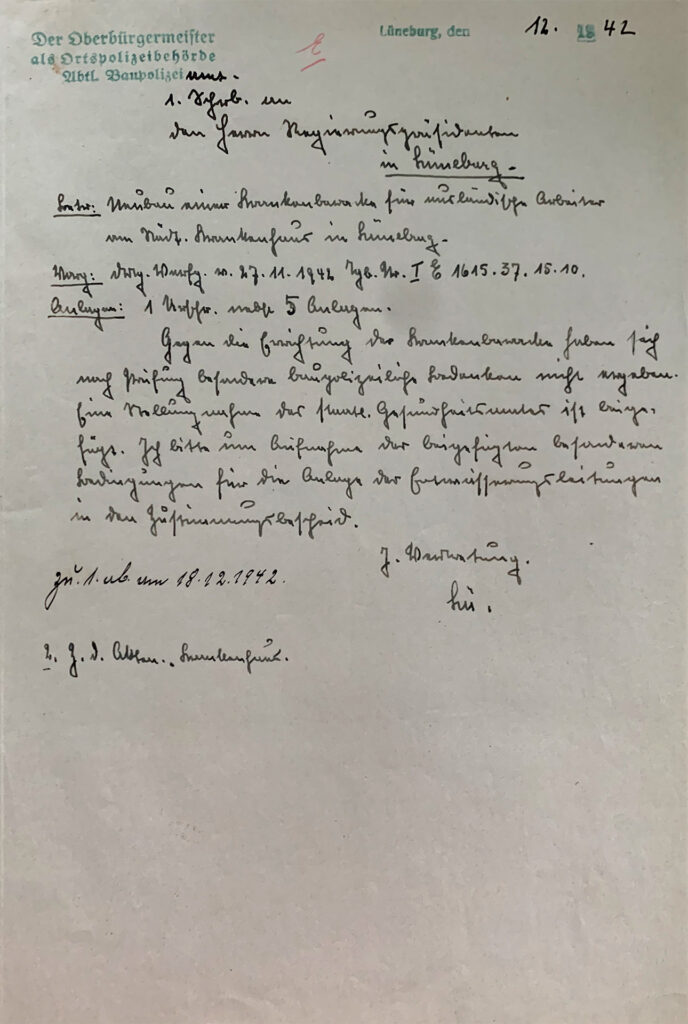 Der Oberbürgermeister
als Ortspolizeibehörde
Abtl. Baupolizeiamt.
Lüneburg, den 12. 19 42
E
1. Schrb. an
den Herrn Regierungspräsidenten
in Lüneburg.
Betr: Neubau einer Krankenbaracke für ausländische Arbeiter
am Städt. Krankenhaus in Lüneburg.
Vorg: dortg. Verfg. v. 27.11.1942 Tgb. Nr. I E 1615.37.15.10.
Anlagen: 1 Urschr. nebst 5 Anlagen.
Gegen die Errichtung der Krankenbaracke haben sich
nach Prüfung besondere baupolizeiliche Bedenken nicht ergeben.
Eine Stellungnahme des staatl. Gesundheitsamtes ist beige-
fügt. Ich bitte um Aufnahme der beigefügten besonderen
Bedingungen für die Anlage der Entwässerungsleitungen
in den Zustimmungsbescheid.
J. Vertretung.
zu. 1. ab am 18.12.1942.
2. Z. d. Akten. Krankenhaus.